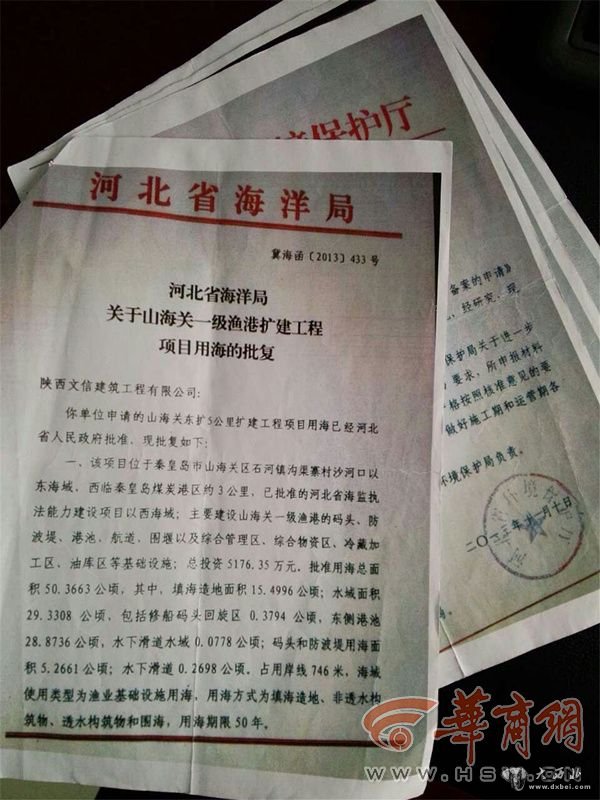 境保护厅
河北省海洋局
冀海函〔2013〕433号
河北省海洋局
关于山海关一级渔港扩建工程
项目用海的批复
陕西文信建筑工程有限公司：
你单位申请的山海关东扩5公里扩建工程项目用海已经河北
省人民政府批准，现批复如下：
一、该项目位于秦皇岛市山海关区石河镇沟渠寨村沙河口以
东海域，西临秦皇岛煤炭港区约3公里，已批准的河北省海监执
法能力建设项目以西海域；主要建设山海关一级渔港的码头、防
波堤、港池、航道、围堰以及综合管理区、综合物资区、冷藏加
工区、油库区等基础设施；总投资5176.35万元。批准用海总面
积50.3663公顷，其中，填海造地面积15.4996公顷；水域面积
29.3308公顷，包括修船码头回旋区0.3794公顷，东侧港池
28.8736公顷，水下滑道水域0.0778公顷；码头和防波堤用海面
积5.2661公顷；水下滑道0.2698公顷。占用岸线746米，海域
使用类型为渔业基础设施用海，用海方式为填海造地、非透水构
筑物、透水构筑物和围海，用海期限50年。
备案的申请》
经研究，现
保护局关于进一步
要求，所申报材料
格按照核准意见的要
做好施工期和运营期各
环境保护局负责。
月十七日
华商网
www.HS
大西北
www.dxbei.com